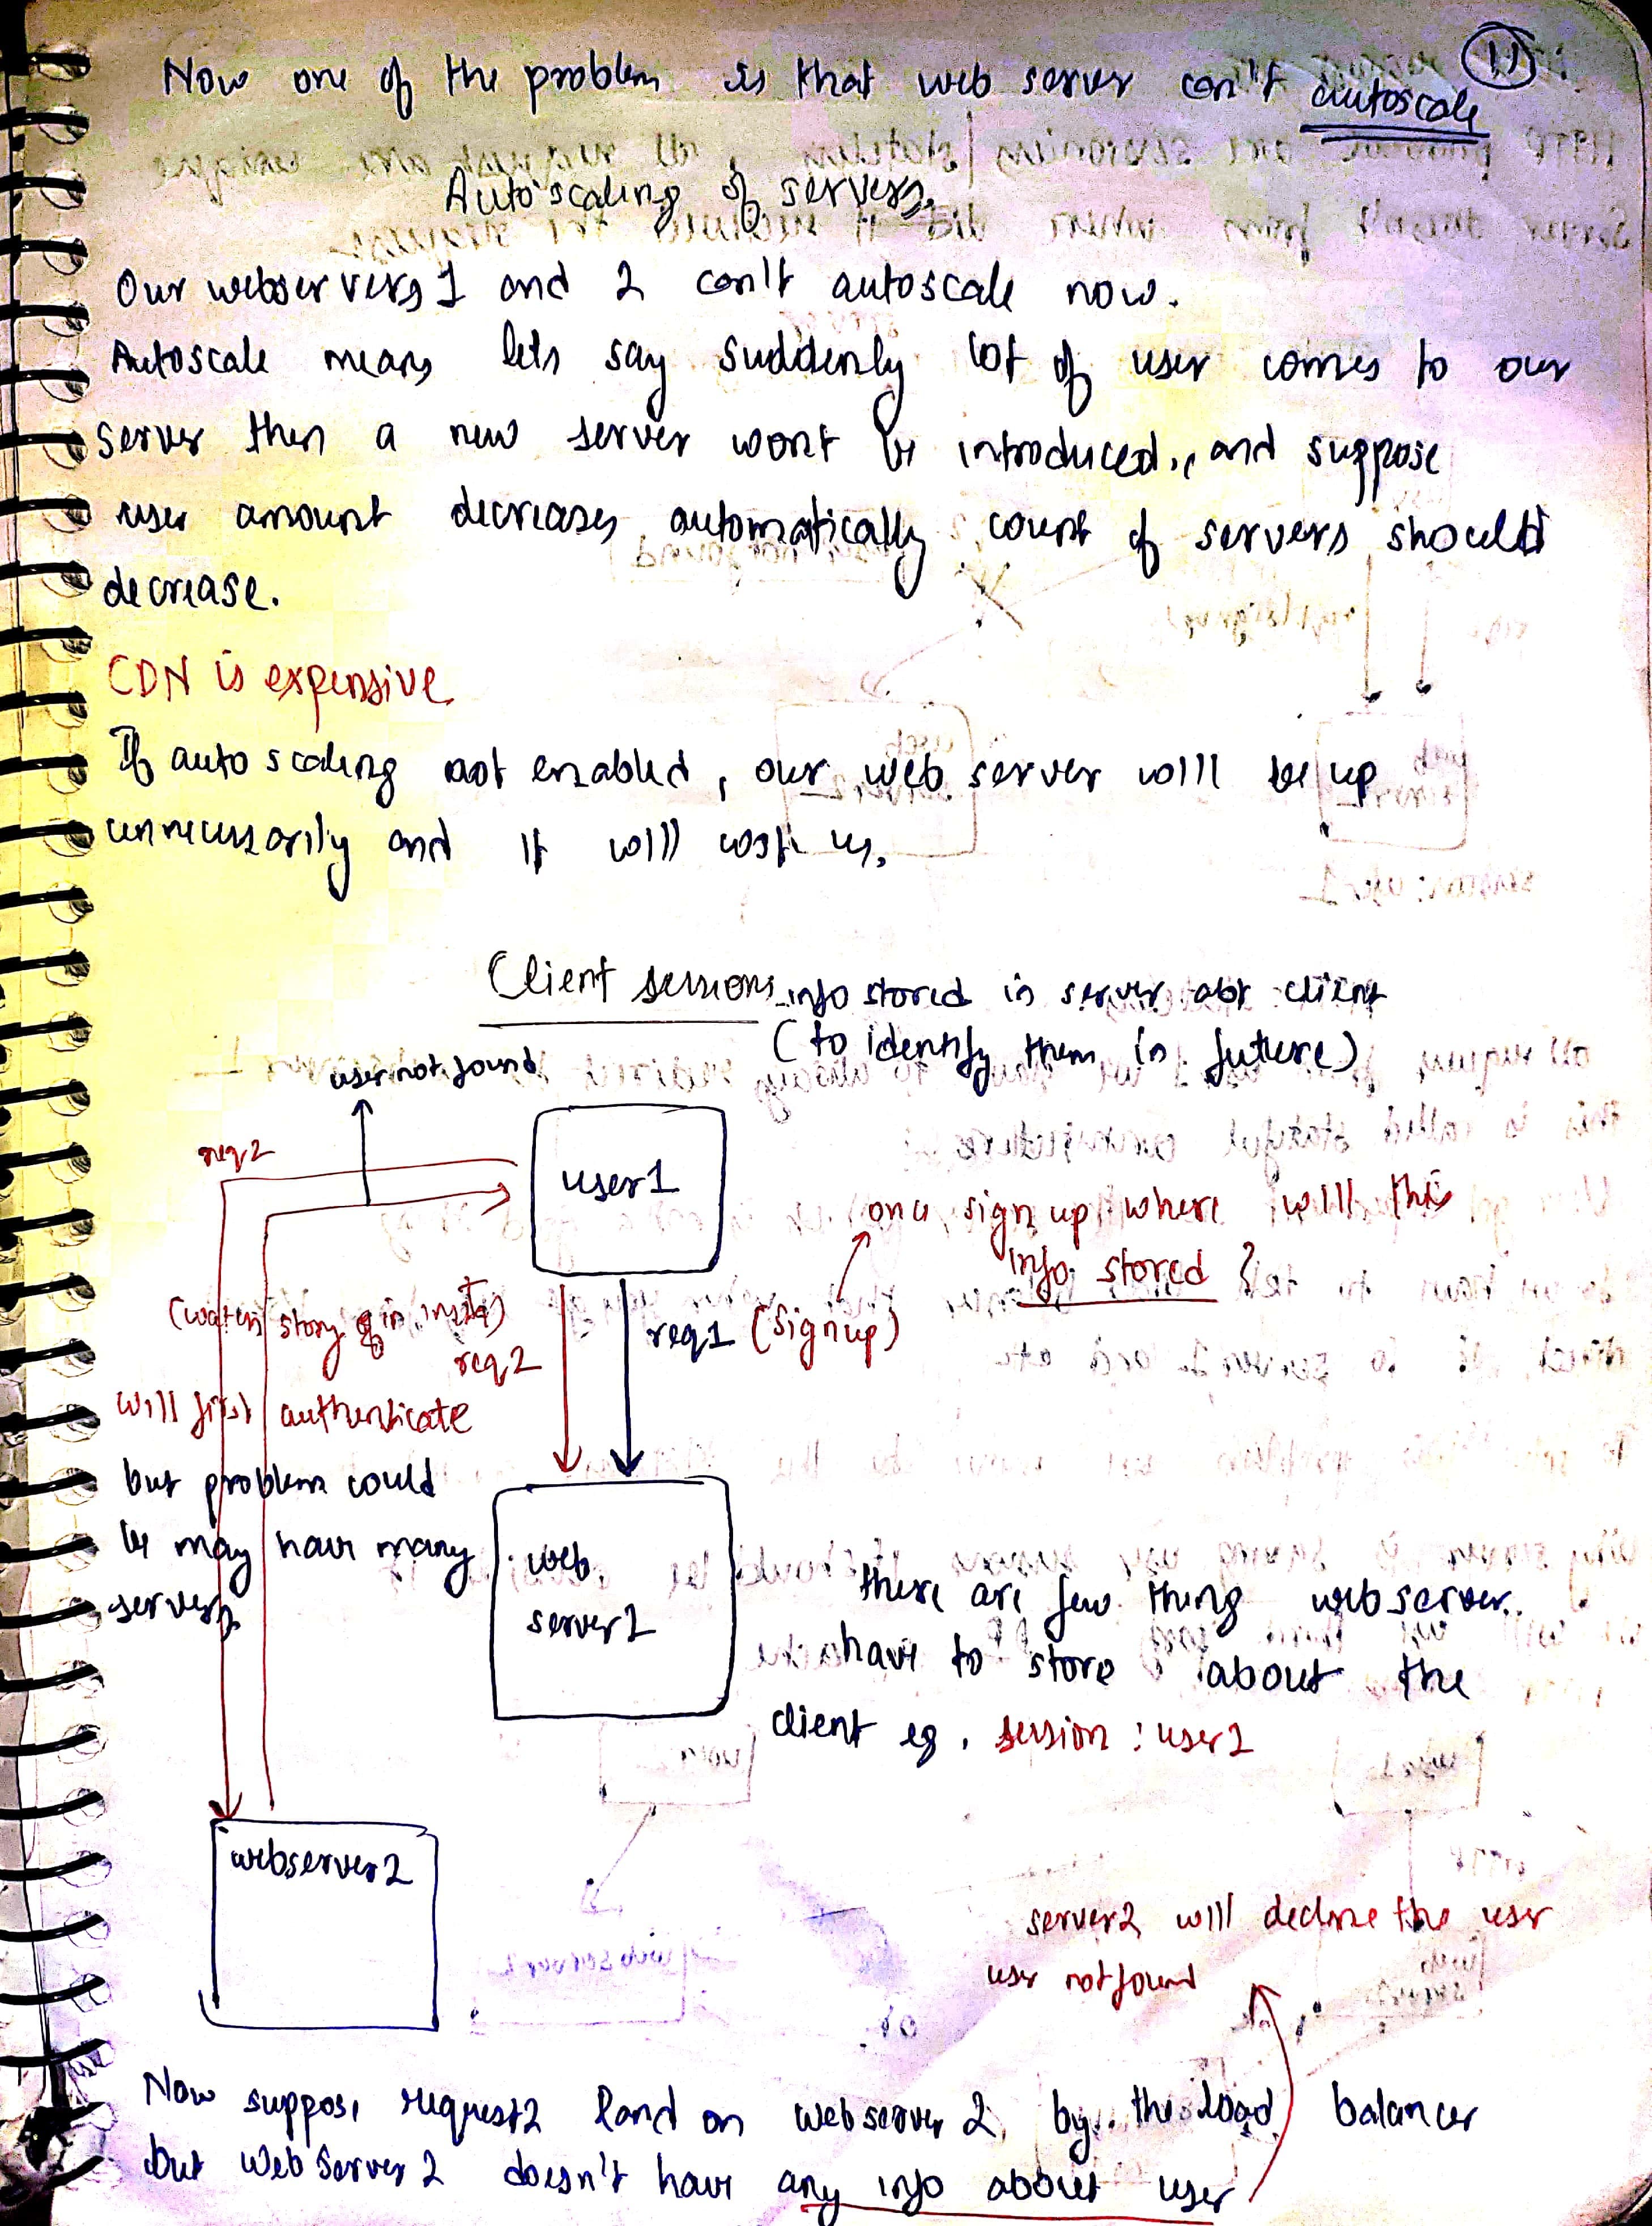 11
Now one of the problem is that web server can't autoscale
Autoscaling of servers.
Our webservers 1 and 2 can't autoscale now.
Autoscale means lets say suddenly lot of user comes to our
server then a new server wont be introduced, and suppose
user amount decreases automatically count of servers should
decrease.
CDN is expensive
If auto scaling not enabled, our web server will be up
unnecessarily and it will cost us.
Client sessions info stored in server abt client
(to identify them in future)
user not found
req2
user1
once sign up where will this
info stored ?
(watch story in insta)
req2
req1 (signup)
will first authenticate
but problem could
be may have many
servers
web
server1
there are few thing webserver
have to store about the
client eg. session : user1
webserver2
server2 will decline the user
user not found
Now suppose request2 land on webserver 2 by the load balancer
but Web Server 2 doesn't have any info about user